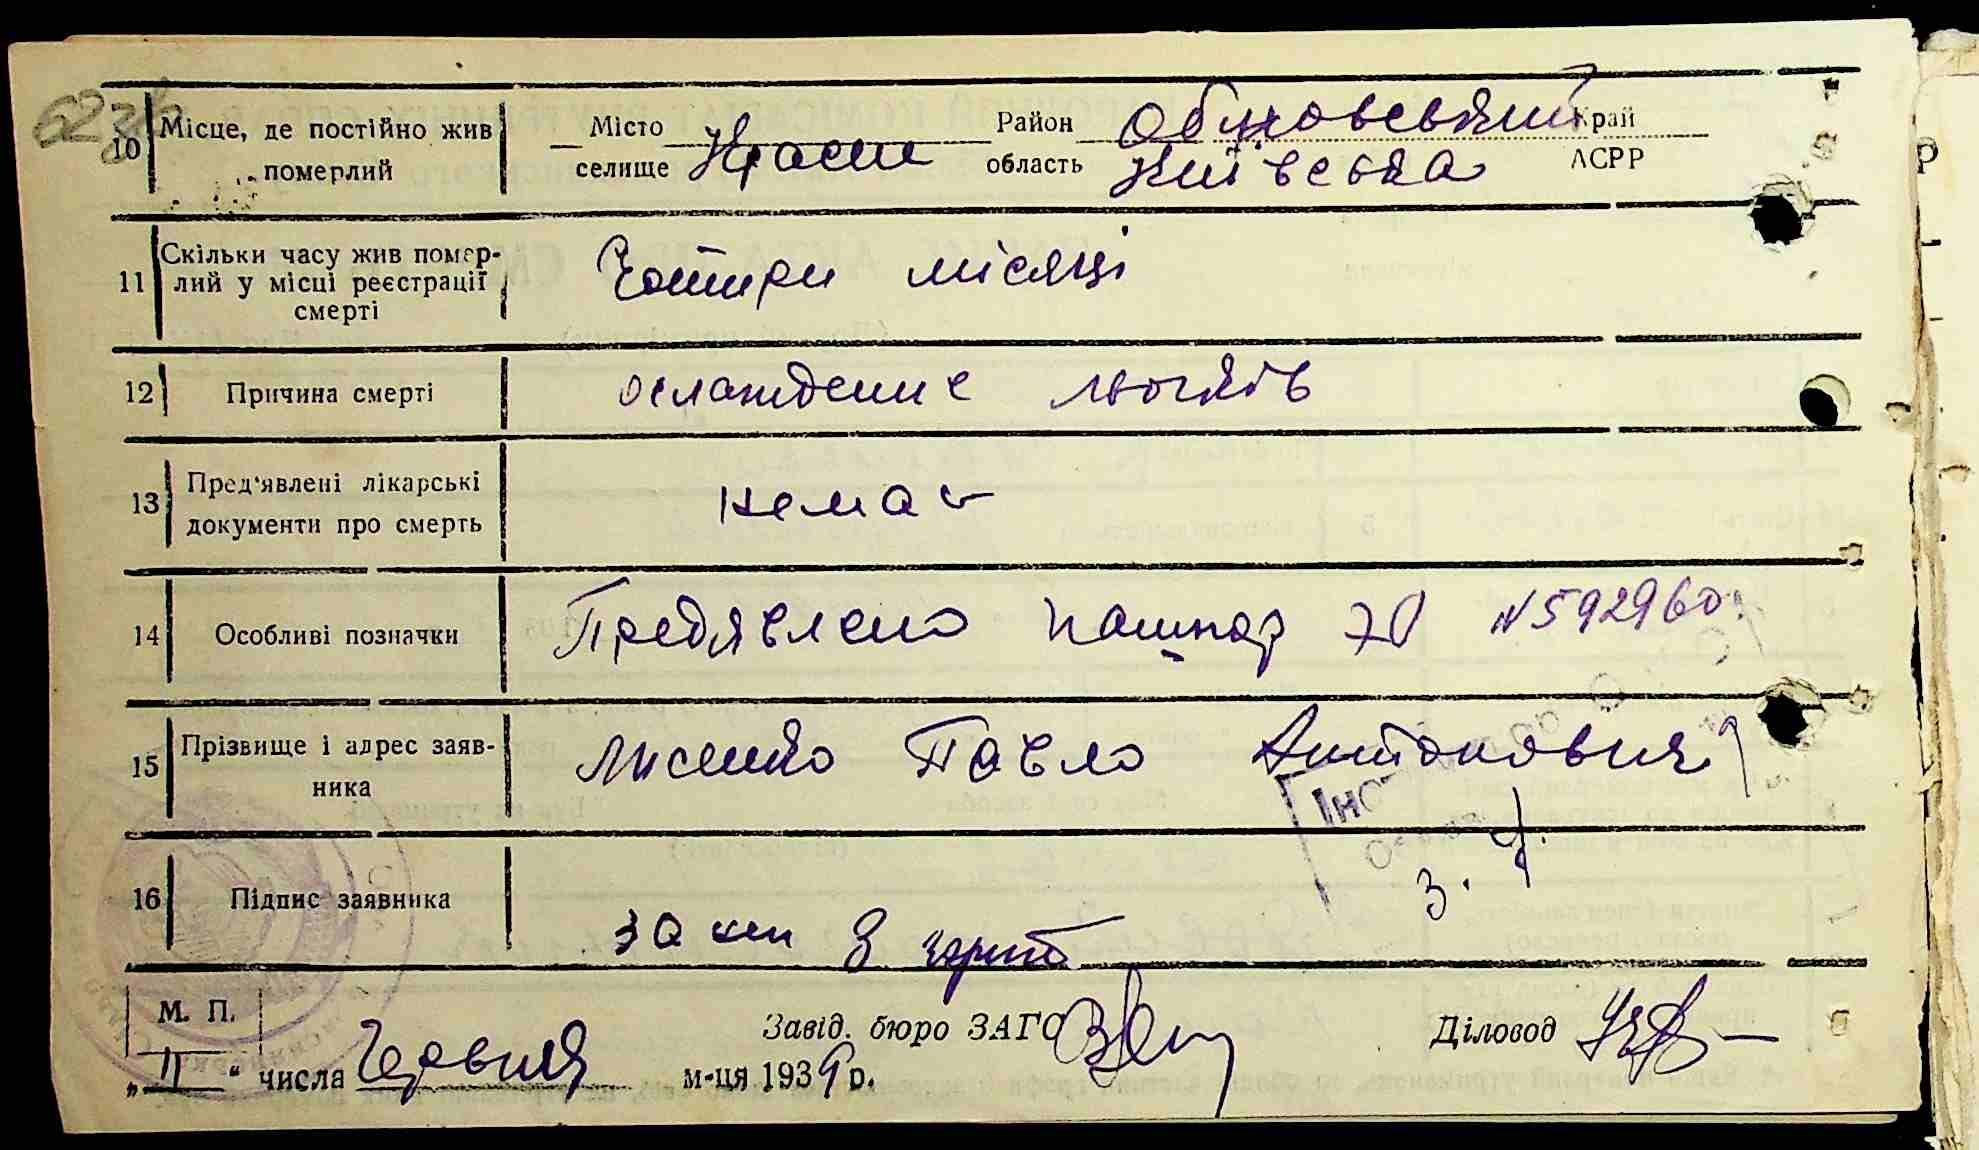 10 Місце, де постійно жив померлий
Місто селище Краси Район область Обуховський Київська Край АСРР
11 Скільки часу жив помер-
лий у місці реєстрації
смерті
Чотири місяці
12 Причина смерті
ослаждение льогків
13 Пред'явлені лікарські
документи про смерть
немає
14 Особливі позначки
Предявлено пашпор № 592960
15 Прізвище і адрес заяв-
ника
Лисенко Павло Антонович
16 Підпис заявника
М. П.
Завід. бюро ЗАГС
Діловод
„11“ числа Червня м-ця 1939 р.